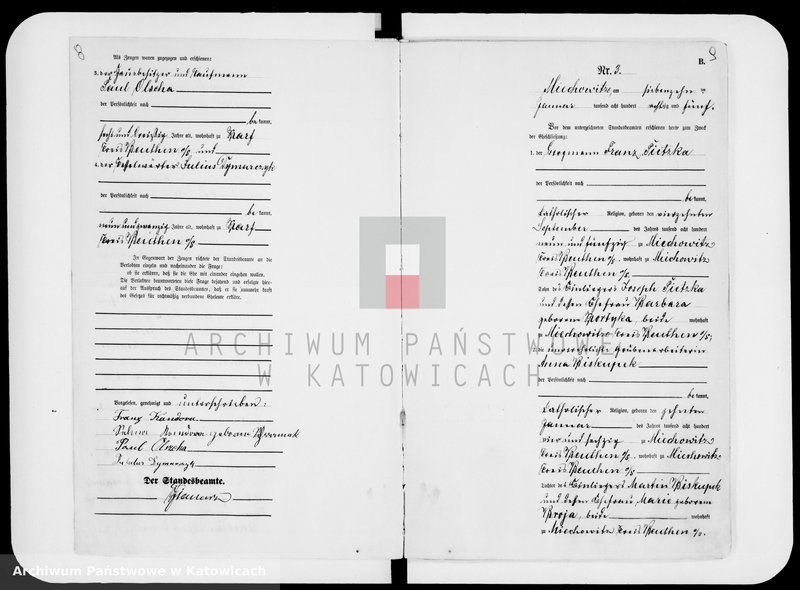 8
Als Zeugen waren zugezogen und erschienen:
3. der Hausbesitzer und Kaufmann
Paul Olscha
der Persönlichkeit nach
be kannt,
sechs und dreißig Jahre alt, wohnhaft zu Karf
Kreis Beuthen o/S. und
4. der Julius
der Persönlichkeit nach
be kannt,
neun und zwanzig Jahre alt, wohnhaft zu Karf
Kreis Beuthen o/S.
In Gegenwart der Zeugen richtete der Standesbeamte an die
Verlobten einzeln und nacheinander die Frage:
ob sie erklären, daß sie die Ehe mit einander eingehen wollen.
Die Verlobten beantworteten diese Frage bejahend und erfolgte hier-
auf der Ausspruch des Standesbeamten, daß er sie nunmehr kraft
des Gesetzes für rechtmäßig verbundene Eheleute erkläre.
Vorgelesen, genehmigt und unterschrieben:
Franz Kandora
Kandora geborene
Paul Olscha
Julius
Der Standesbeamte.
9
B.
Nr. 3.
Miechowitz, am siebenzehn ten
Januar tausend acht hundert achtzig und fünf.
Vor dem unterzeichneten Standesbeamten erschienen heute zum Zweck
der Eheschließung:
1. der Bergmann Franz Pietzka
der Persönlichkeit nach
be kannt,
katholischer Religion, geboren den vierzehnten
September des Jahres tausend acht hundert
neun und fünfzig zu Miechowitz
Kreis Beuthen o/S. wohnhaft zu Miechowitz
Kreis Beuthen o/S.
Sohn des Einliegers Joseph Pietzka
und dessen Ehefrau Barbara
geborenen beide wohnhaft
zu Miechowitz Kreis Beuthen o/S.
2. die unverehelichte Grubenarbeiterin
Anna Biskupek
der Persönlichkeit nach
be kannt,
katholischer Religion, geboren den zehnten
Januar des Jahres tausend acht hundert
vier und sechzig zu Miechowitz
Kreis Beuthen o/S. wohnhaft zu Miechowitz
Kreis Beuthen o/S.
Tochter des Einliegers Martin Biskupek
und dessen Ehefrau Marie geborenen
Broja, beide wohnhaft
zu Miechowitz Kreis Beuthen o/S.
ARCHIWUM PAŃSTWOWE
W KATOWICACH
Archiwum Państwowe w Katowicach